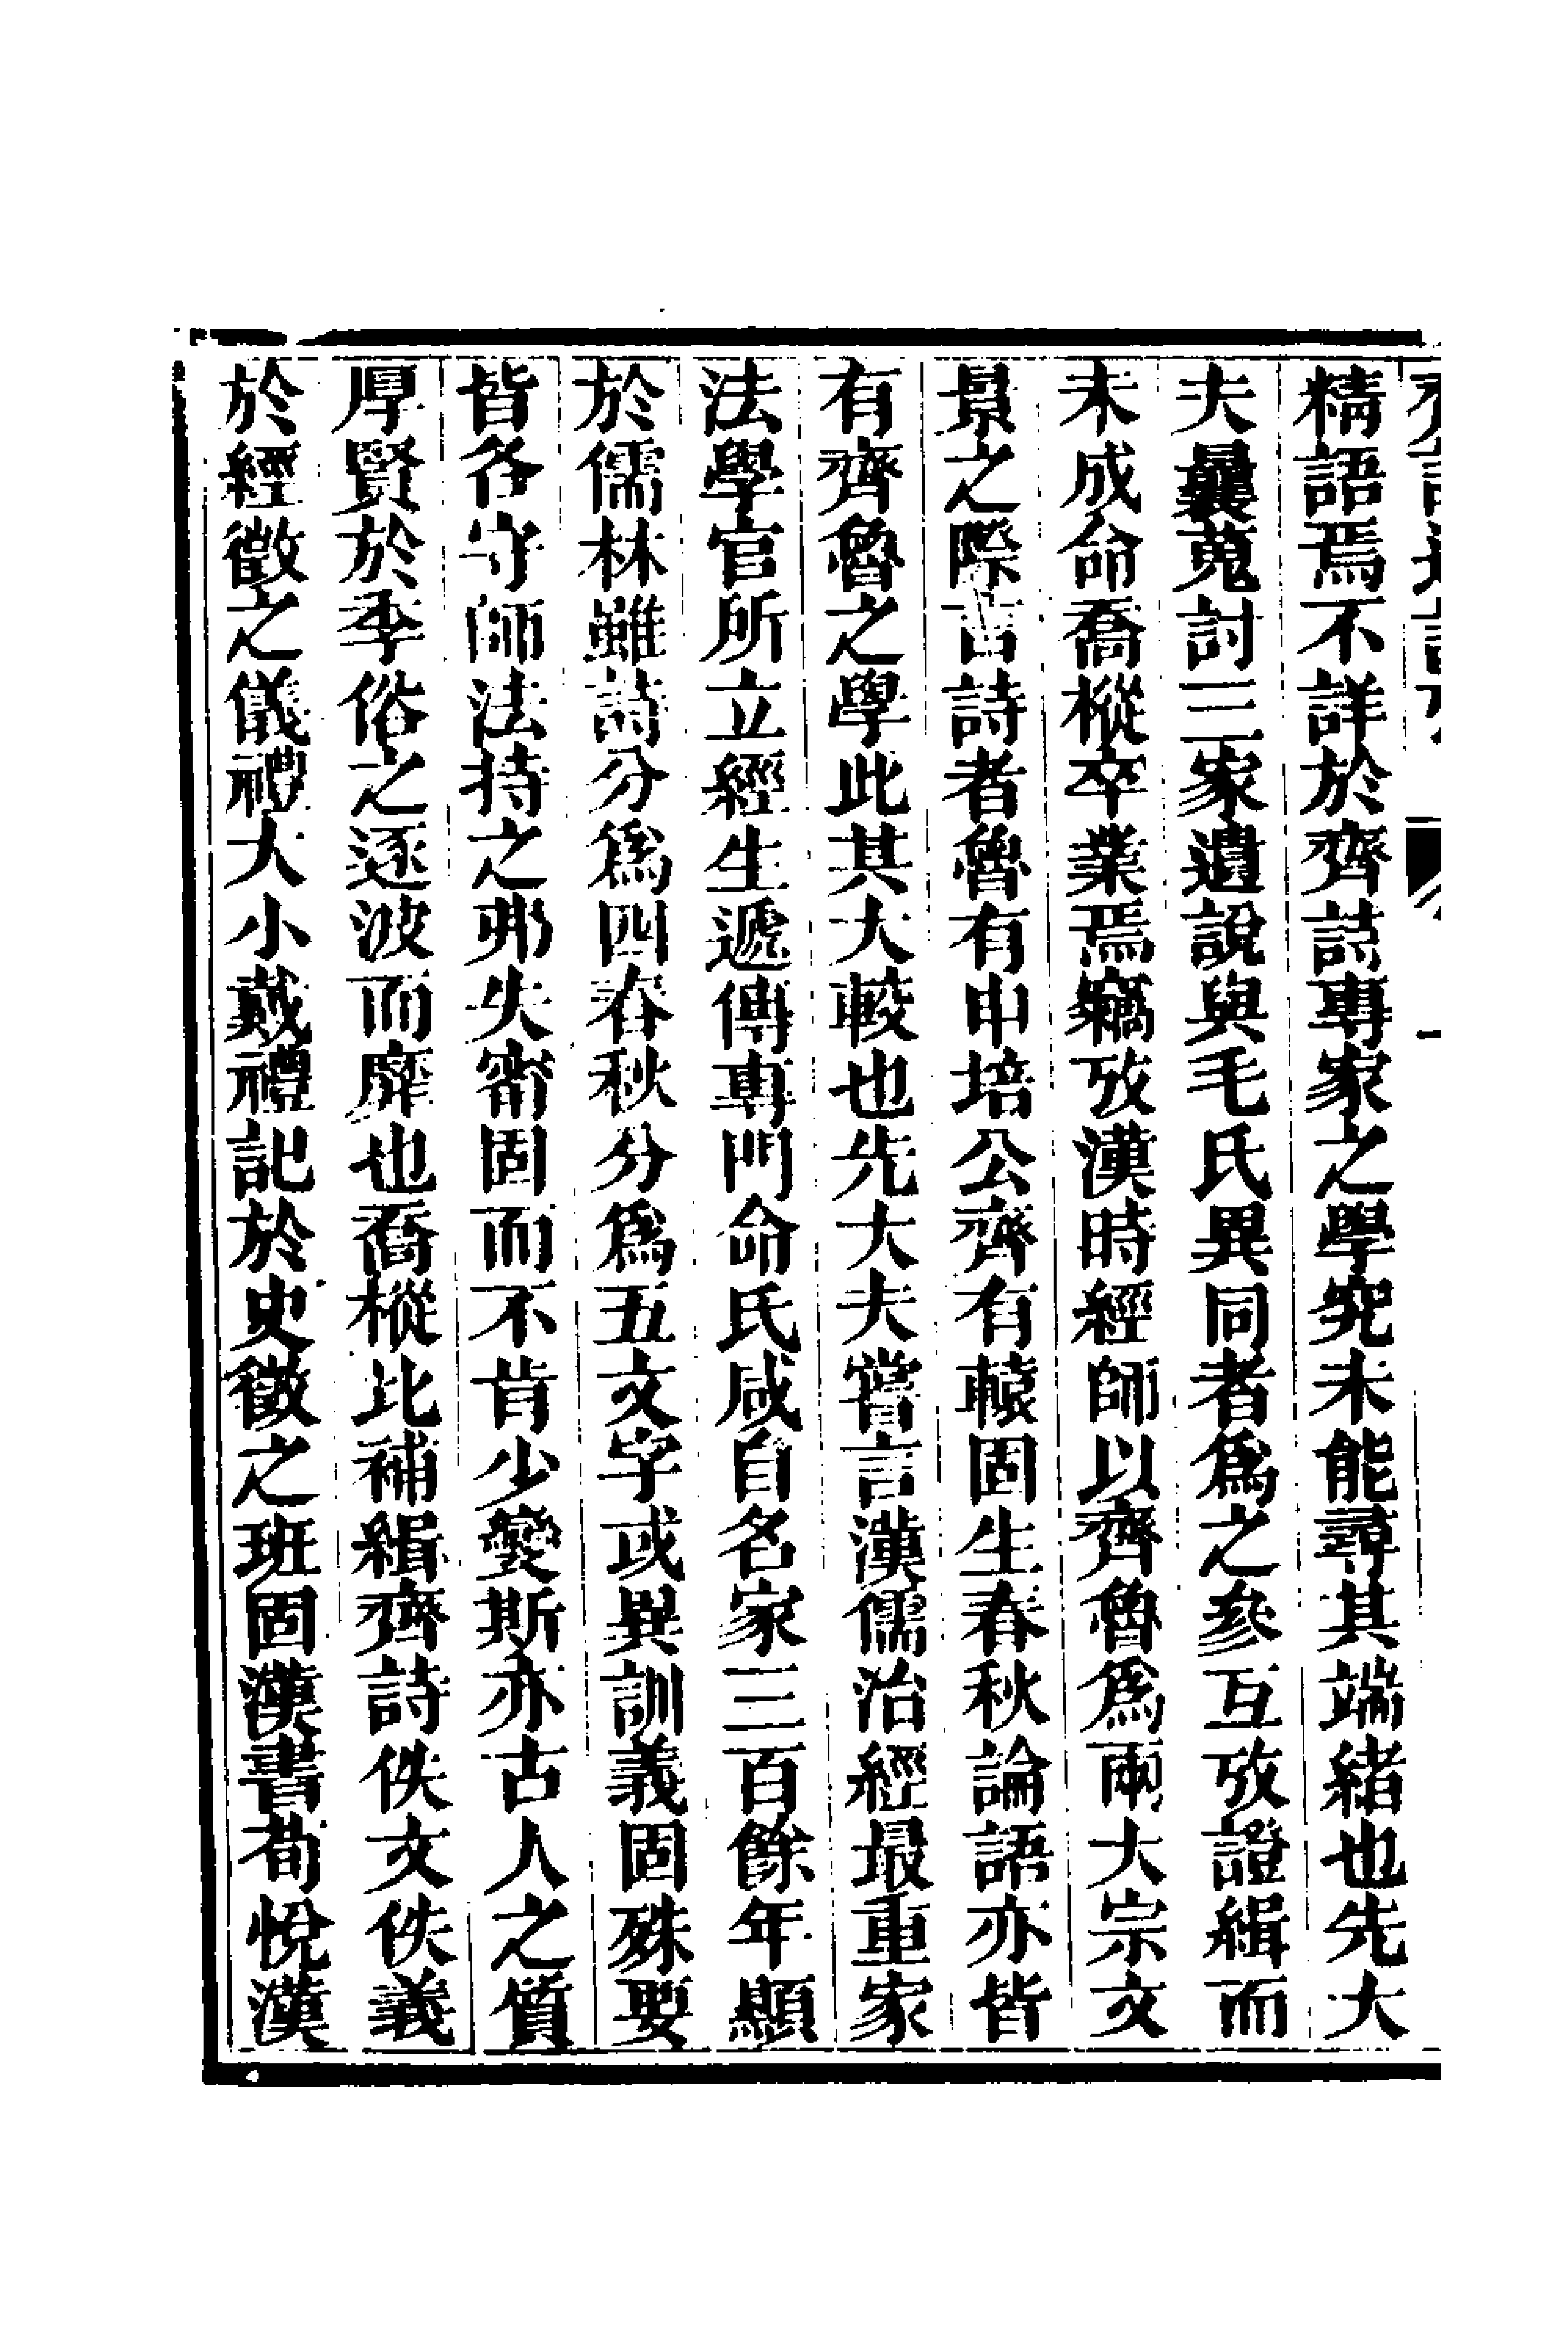 精語焉不詳於齊詩專家之學究未能尋其端緒也先大
夫曩蒐討三家遺說與毛氏異同者爲之參互攷證緝而
未成命喬樅卒業焉竊攷漢時經師以齊魯爲兩大宗文
景之際言詩者魯有申培公齊有轅固生春秋論語亦皆
有齊魯之學此其大較也先大夫嘗言漢儒治經最重家
法學官所立經生遞傳專門命氏咸自名家三百餘年顯
於儒林雖詩分爲四春秋分爲五文字或異訓義固殊要
皆各守師法持之弗失寧固而不肯少變斯亦古人之質
厚賢於季俗之逐波而靡也喬樅比補緝齊詩佚文佚義
於經徵之儀禮大小戴禮記於史徵之班固漢書荀悅漢